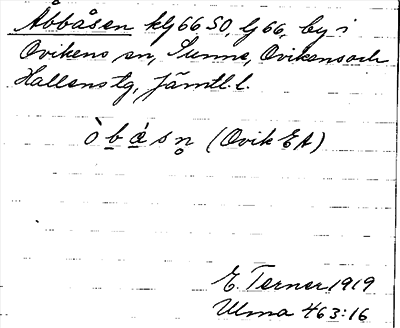 Åbbåsen kbl 66 SO, lg 66, by i
Ovikens sn, Sunne, Ovikens och
Hallens tg, Jämtl. l.
òbåsn̥ (Ovik EA)
E. Terner 1919
Ulma 463:16